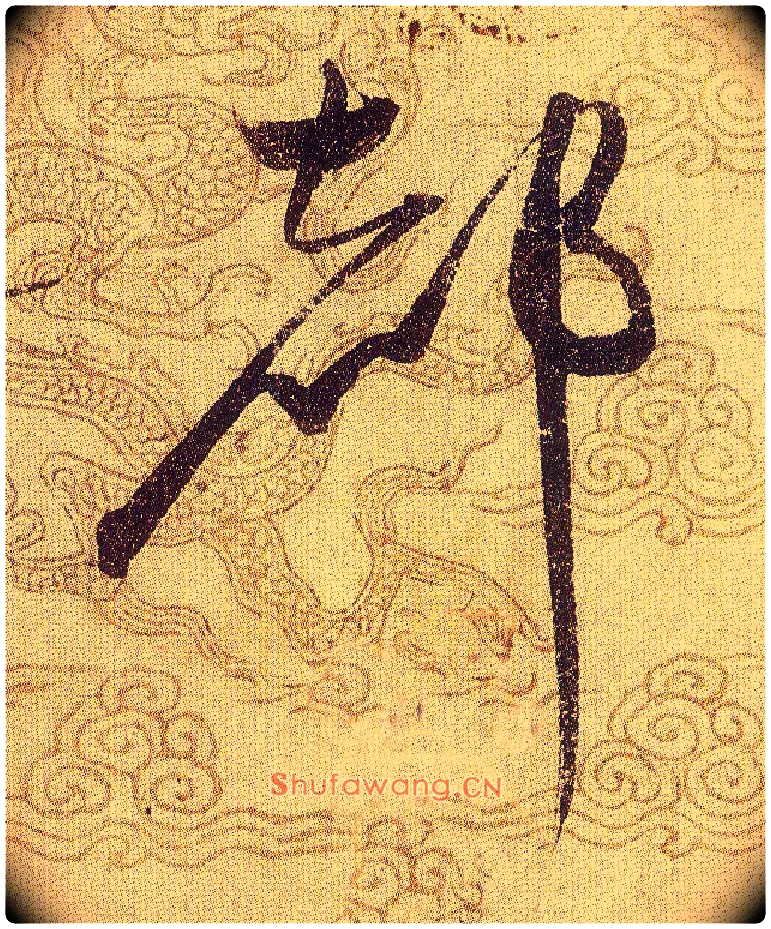 都
Shufawang.CN